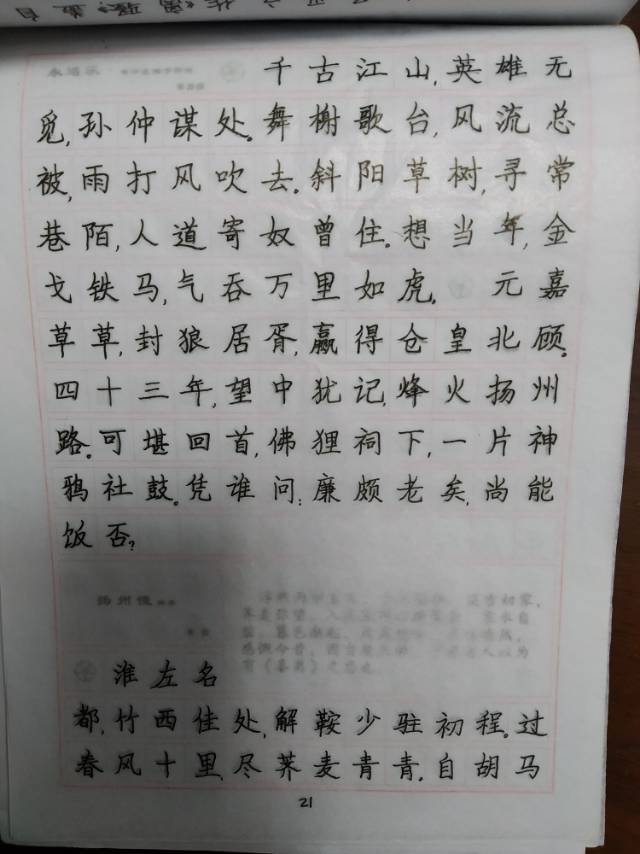 千古江山,英雄无
觅,孙仲谋处。舞榭歌台,风流总
被,雨打风吹去。斜阳草树,寻常
巷陌,人道寄奴曾住。想当年,金
戈铁马,气吞万里如虎。 元嘉
草草,封狼居胥,赢得仓皇北顾。
四十三年,望中犹记,烽火扬州
路。可堪回首,佛狸祠下,一片神
鸦社鼓。凭谁问:廉颇老矣,尚能
饭否?
扬州慢
淮左名
都,竹西佳处,解鞍少驻初程。过
春风十里,尽荠麦青青。自胡马
21